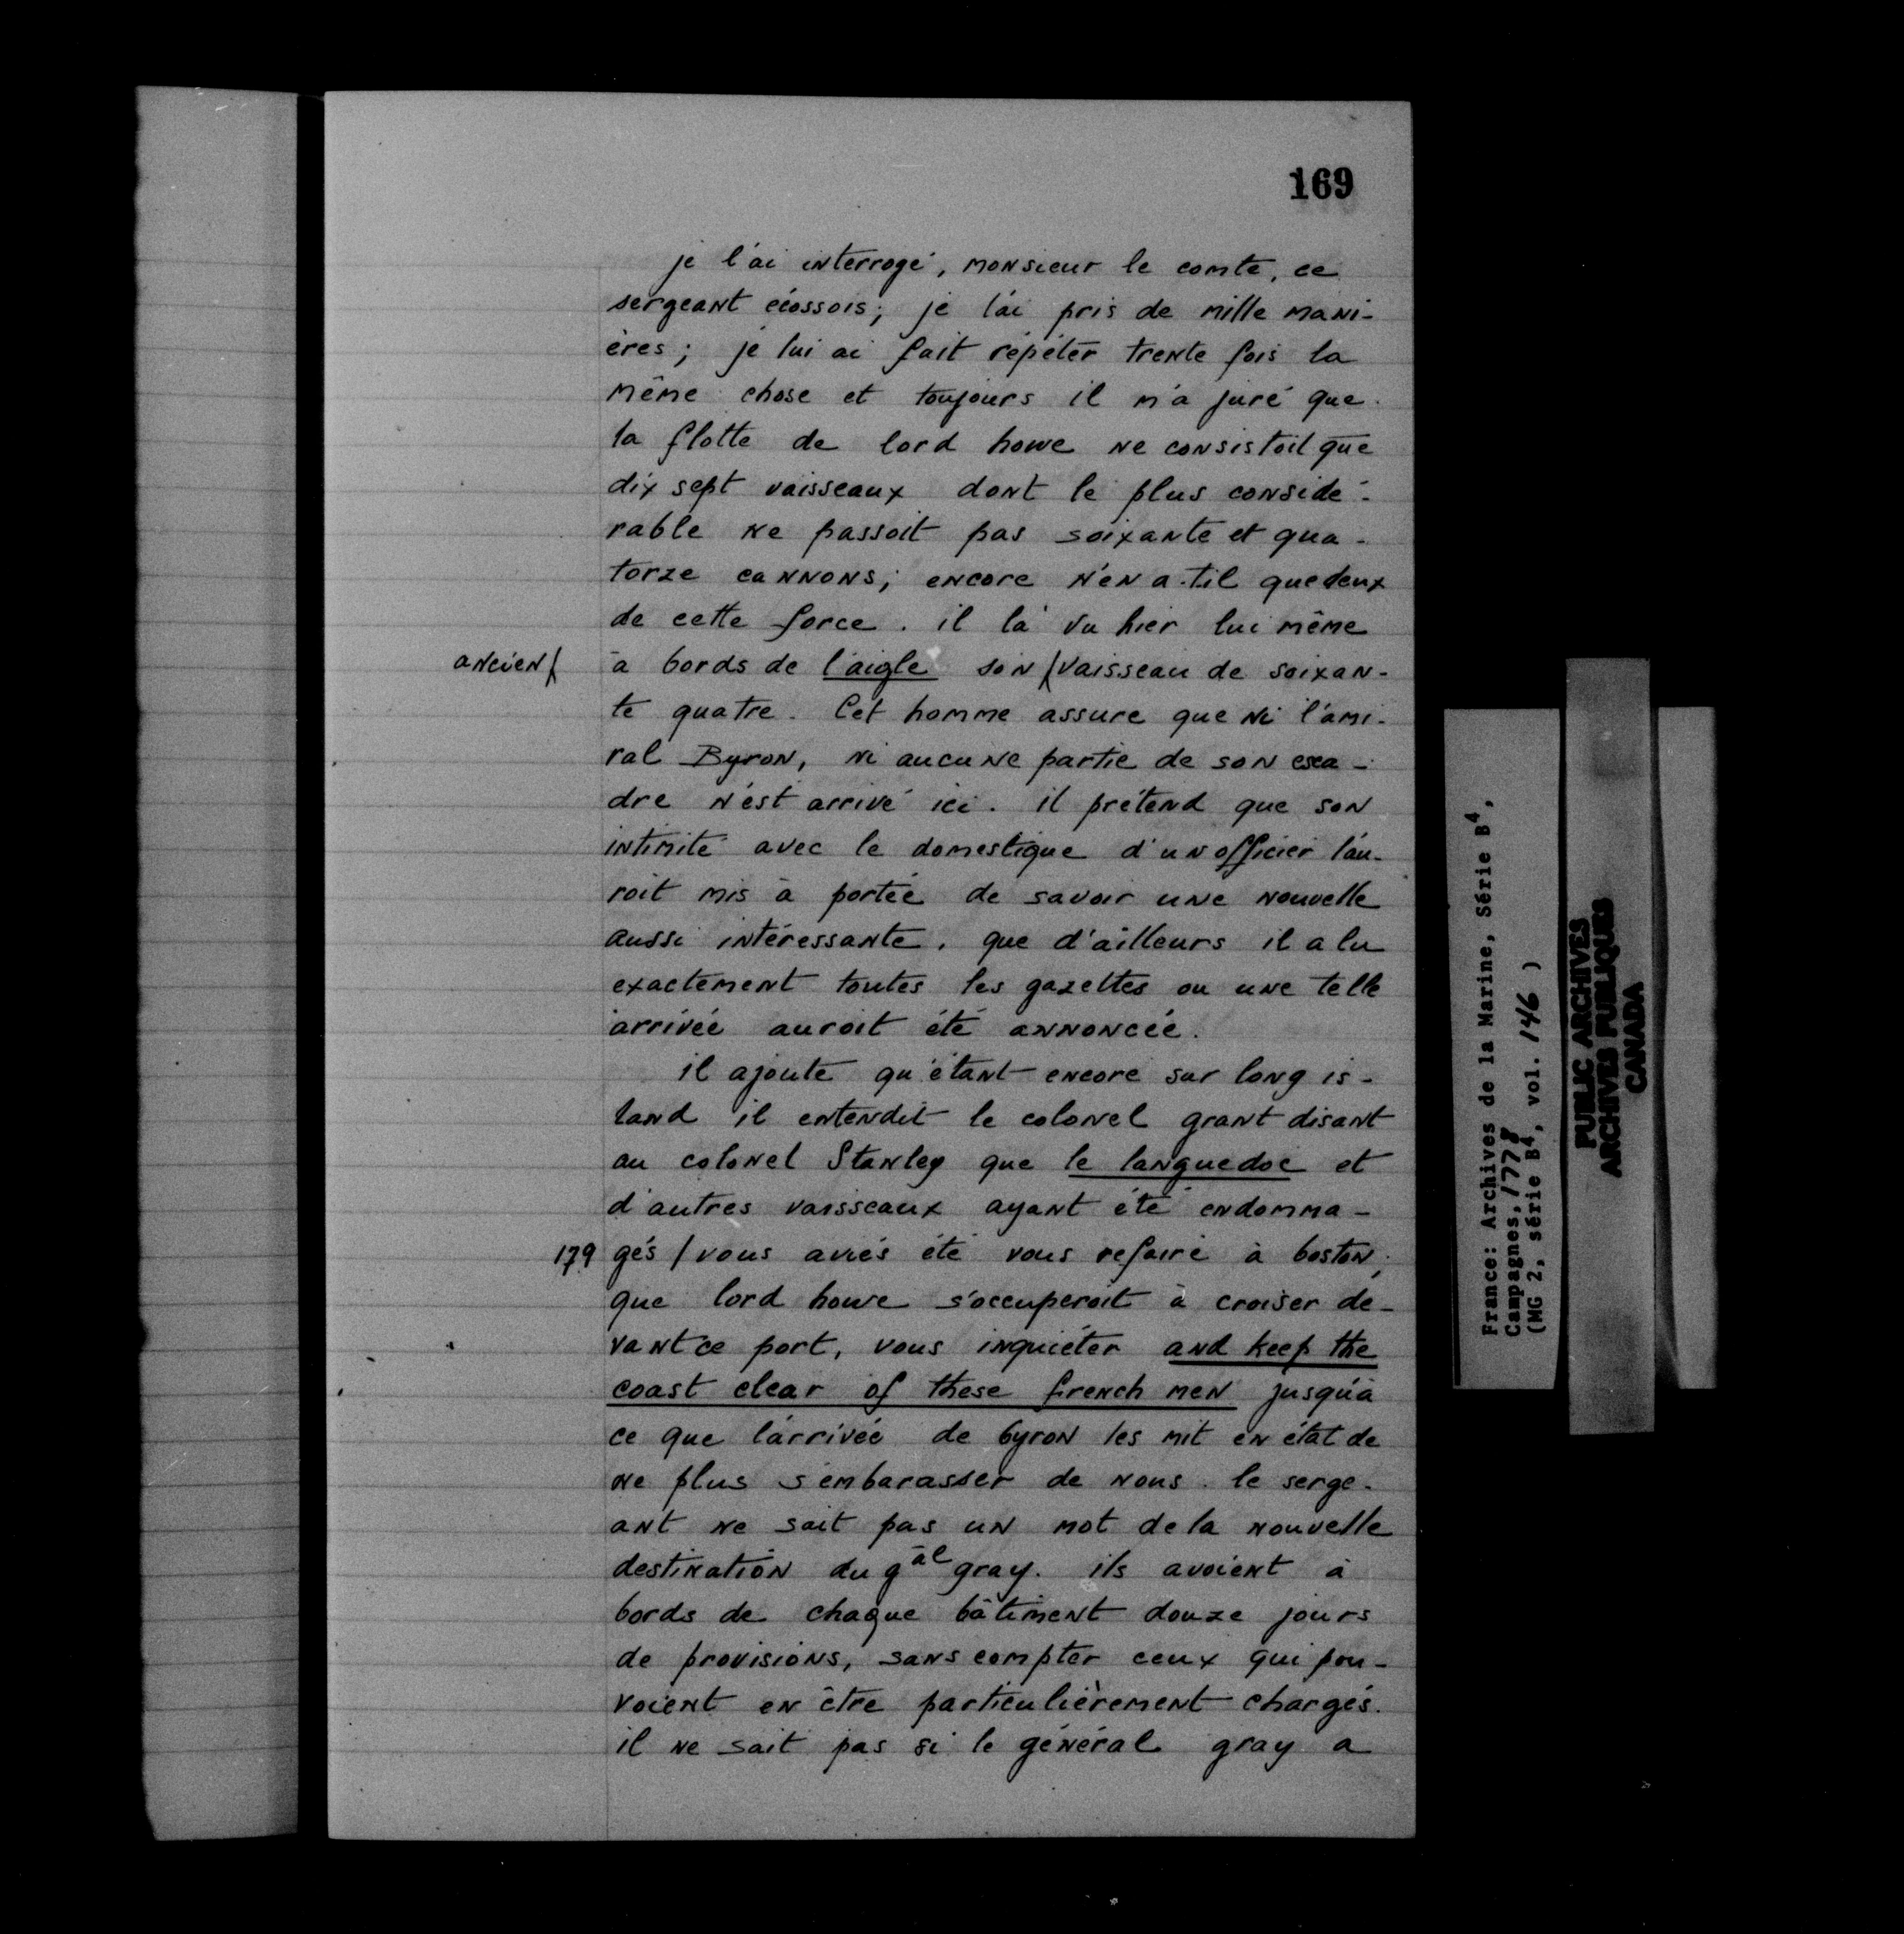 169
je l'ai interrogé, monsieur le comte, ce
sergeant écossois; je l'ai pris de mille mani-
ères; je lui ai fait répéter trente fois la
même chose et toujours il m'a juré que
la flotte de lord howe ne consistoit que
dix sept vaisseaux dont le plus considé-
rable ne passoit pas soixante et qua-
torze cannons; encore n'en a-til que deux
de cette force. il l'a vu hier lui même
ancien/ à bords de l'aigle son /vaisseau de soixan-
te quatre. Cet homme assure que ni l'ami-
ral Byron, ni aucune partie de son esca-
dre n'est arrivé ici. il prétend que son
intimité avec le domestique d'un officier l'au-
roit mis à portée de savoir une nouvelle
aussi intéressante, que d'ailleurs il a lu
exactement toutes les gazettes ou une telle
arrivée auroit été annoncée.
il ajoute qu'étant encore sur long is-
land il entendit le colonel grant disant
au colonel Stanley que le languedoc et
d'autres vaisseaux ayant été endomma-
179 gés / vous aviés été vous refaire à boston;
que lord howe s'occuperoit à croiser de-
vant ce port, vous inquiéter and keep the
coast clear of these french men jusqu'à
ce que l'arrivée de byron les mit en état de
ne plus s'embarasser de nous. le serge-
ant ne sait pas un mot de la nouvelle
destination du gāl gray. ils avoient à
bords de chaque bâtiment douze jours
de provisions, sans compter ceux qui pou-
voient en être particulièrement chargés.
il ne sait pas si le général gray a
France: Archives de la Marine, Série B4,
Campagnes, 1778
(MG 2, série B4, vol. 146 )
PUBLIC ARCHIVES
ARCHIVES PUBLIQUES
CANADA